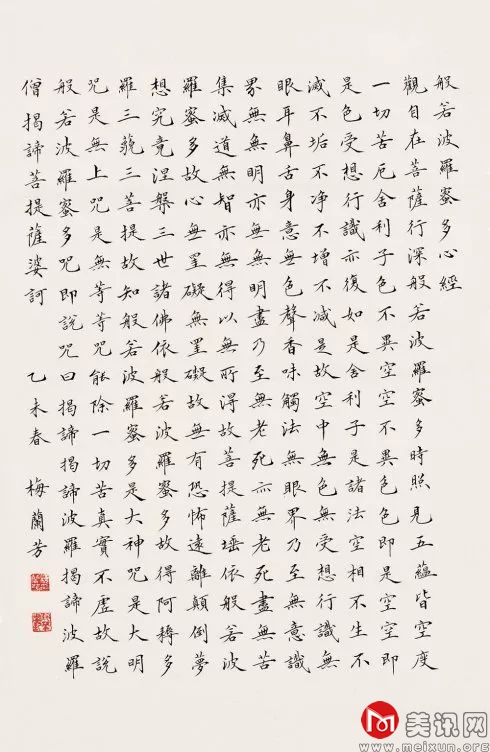 般若波羅蜜多心經
觀自在菩薩行深般若波羅蜜多時照見五蘊皆空度
一切苦厄舍利子色不異空空不異色色即是空空即
是色受想行識亦復如是舍利子是諸法空相不生不
滅不垢不净不增不減是故空中無色無受想行識無
眼耳鼻舌身意無色聲香味觸法無眼界乃至無意識
界無無明亦無無明盡乃至無老死亦無老死盡無苦
集滅道無智亦無得以無所得故菩提薩埵依般若波
羅蜜多故心無罣礙無罣礙故無有恐怖遠離顛倒夢
想究竟涅槃三世諸佛依般若波羅蜜多故得阿耨多
羅三藐三菩提故知般若波羅蜜多是大神咒是大明
咒是無上咒是無等等咒能除一切苦真實不虛故說
般若波羅蜜多咒即說咒曰揭諦揭諦波羅揭諦波羅
僧揭諦菩提薩婆訶 乙未春 梅蘭芳
美讯网
www.meixun.org